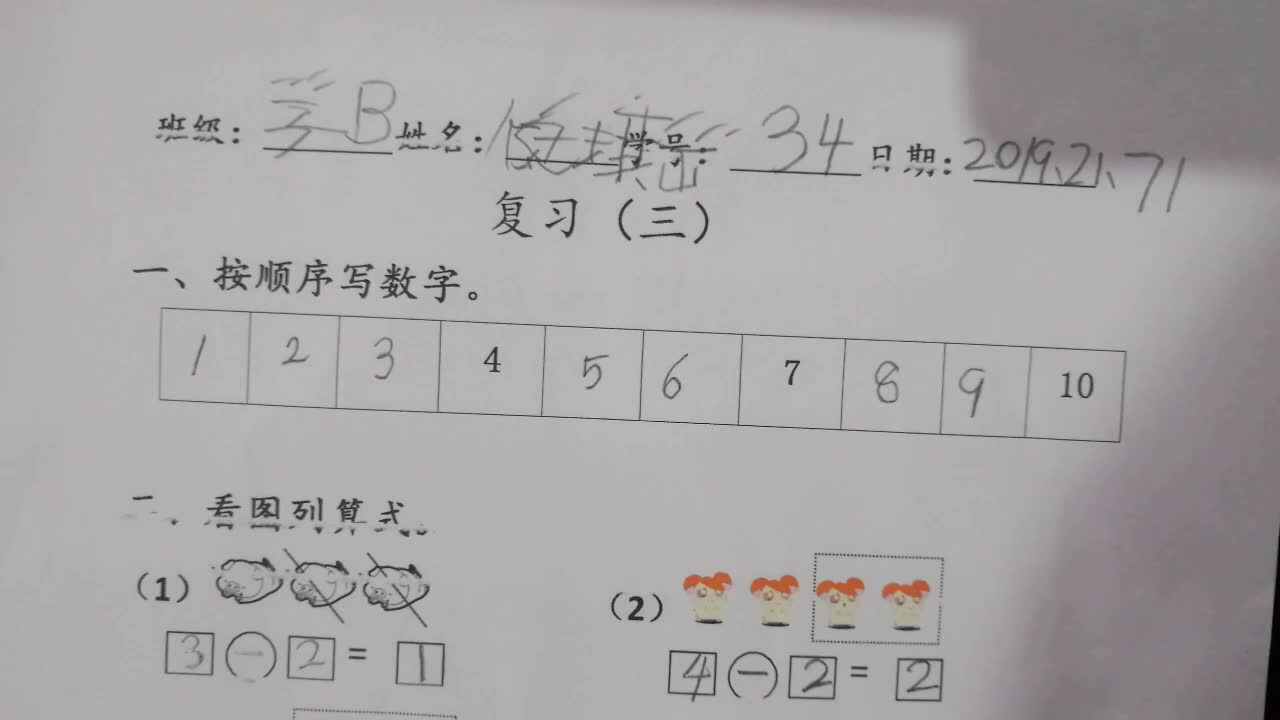 班级：学B 姓名： 学号：34 日期：2019、21、71
复习（三）
一、按顺序写数字。
1 2 3 4 5 6 7 8 9 10
二、看图列算式。
（1） （2）
3 - 2 = 1 4 - 2 = 2